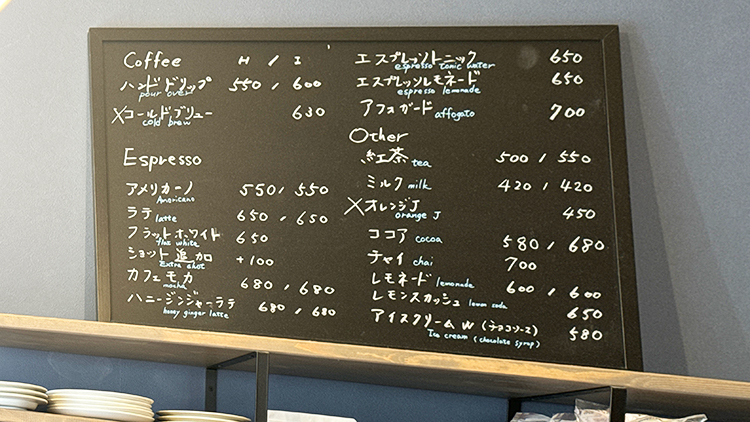 Coffee H / I
ハンドドリップ 550 / 600
pour over
Xコールドブリュー 630
cold brew
Espresso
アメリカーノ 550 / 550
Americano
ラテ latte 650 / 650
フラットホワイト 650
flat white
ショット追加 +100
extra shot
カフェモカ 680 / 680
mocha
ハニージンジャーラテ 680 / 680
honey ginger latte
エスプレッソトニック 650
espresso tonic water
エスプレッソレモネード 650
espresso lemonade
アフォガード affogato 700
Other
紅茶 tea 500 / 550
ミルク milk 420 / 420
XオレンジJ 450
orange J
ココア cocoa 580 / 680
チャイ chai 700
レモネード lemonade 600 / 600
レモンスカッシュ lemon soda 650
アイスクリーム W (チョコソース) 580
Ice cream (chocolate syrup)